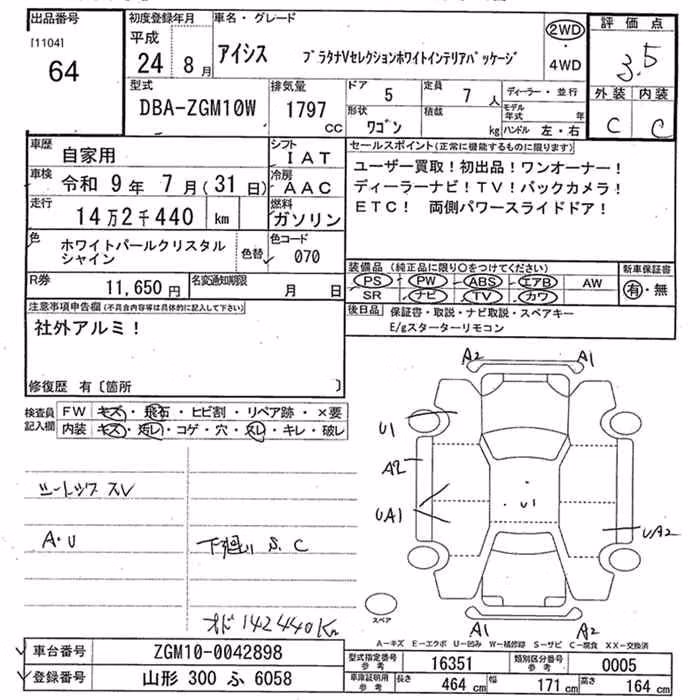 出品番号
[1104]
64
初度登録年月
平成
24年 8月
車名・グレード
アイシス
プラタナVセレクションホワイトインテリアパッケージ
2WD
・
4WD
評価点
3.5
外装 内装
C C
型式
DBA-ZGM10W
排気量
1797
CC
ドア
5
定員
7 人
形状
ワゴン
積載
kg
ディーラー・並行
モデル年式 年
ハンドル 左・右
車歴
自家用
シフト
IAT
車検
令和 9年 7月(31日)
冷房
AAC
走行
14万2千440 km
燃料
ガソリン
色
ホワイトパールクリスタル
シャイン
色替
色コード
070
R券
11,650円
名変通知期限
月 日
セールスポイント(正常に機能するものに限ります)
ユーザー買取!初出品!ワンオーナー!
ディーラーナビ!TV!バックカメラ!
ETC! 両側パワースライドドア!
装備品(純正品に限り○をつけてください)
PS PW ABS エアB AW
SR ナビ TV カワ
新車保証書
有・無
後日品
保証書・取説・ナビ取説・スペアキー
E/gスターターリモコン
注意事項申告欄(不具合内容等は具体的に記入して下さい)
社外アルミ!
修復歴 有〔箇所 〕
検査員
記入欄
FW キズ・飛石・ヒビ割・リペア跡・×要
内装 キズ・汚レ・コゲ・穴・スレ・キレ・破レ
A・U
下廻り S、C
オド 142440Km
A2 A1
U1
A2
UA1
U1
UA2
A1 A2
スペア
A-キズ E-エクボ U-凹み W-補修跡 S-サビ C-腐食 XX-交換済
車台番号
ZGM10-0042898
登録番号
山形 300 ふ 6058
型式指定番号
参考
16351
類別区分番号
参考
0005
車庫証明用
参考
長さ 464 cm 幅 171 cm 高さ 164 cm